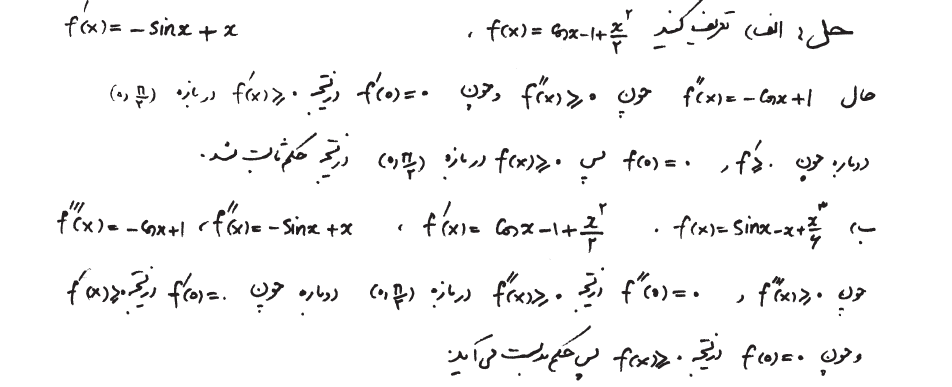 حل: الف) تعریف کنید f(x) = cosx - 1 + x²/۲ ، f'(x) = - sinx + x
حال f''(x) = - cosx + 1 چون f''(x) ≥ ۰ وچون f'(۰) = ۰ درنتیجه f'(x) ≥ ۰ در بازه (۰, π/۲)
دوباره چون f' ≥ ۰ و f(۰) = ۰ پس f(x) ≥ ۰ در بازه (۰, π/۲) درنتیجه حکم ثابت شد.
ب) f(x) = sinx - x + x³/۶ . f'(x) = cosx - 1 + x²/۲ ، f''(x) = - sinx + x ، f'''(x) = - cosx + 1
چون f'''(x) ≥ ۰ و f''(۰) = ۰ درنتیجه f''(x) ≥ ۰ در بازه (۰, π/۲) دوباره چون f'(۰) = ۰ درنتیجه f'(x) ≥ ۰
وچون f(۰) = ۰ درنتیجه f(x) ≥ ۰ پس حکم بدست می آید.